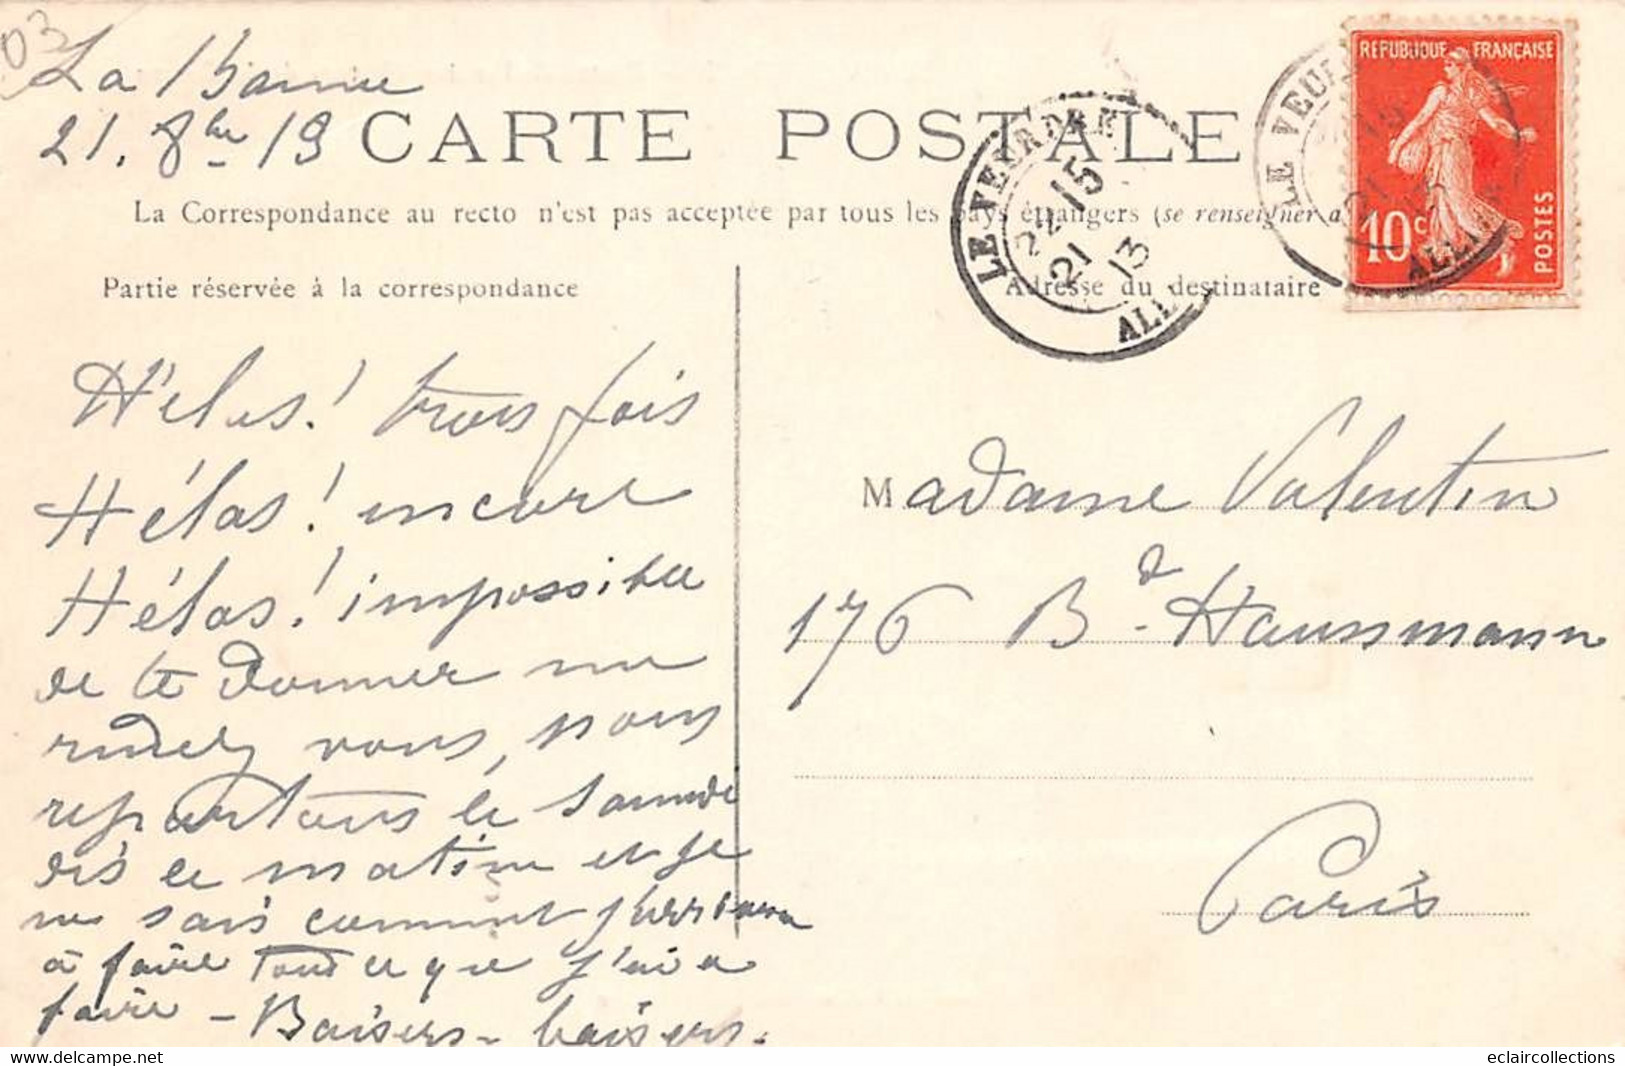 03
La Banne
21. 8bre 13
CARTE POSTALE
La Correspondance au recto n'est pas acceptée par tous les pays étrangers (se renseigner a
Partie réservée à la correspondance
Adresse du destinataire
LE VEURDRE
22 15
21
13
ALL
LE VEUR
21
ALLI
REPUBLIQUE FRANÇAISE
10c
POSTES
Hélas! trois fois
Hélas! encore
Hélas! impossible
de te donner un
rendez vous, nous
repartons le samede
dis le matin et je
ne sais comment j'arriverai
à faire tout ce que j'ai à
faire - Baisers - baisers.
Madame Valentin
176 Bd Haussmann
Paris
eclaircollections